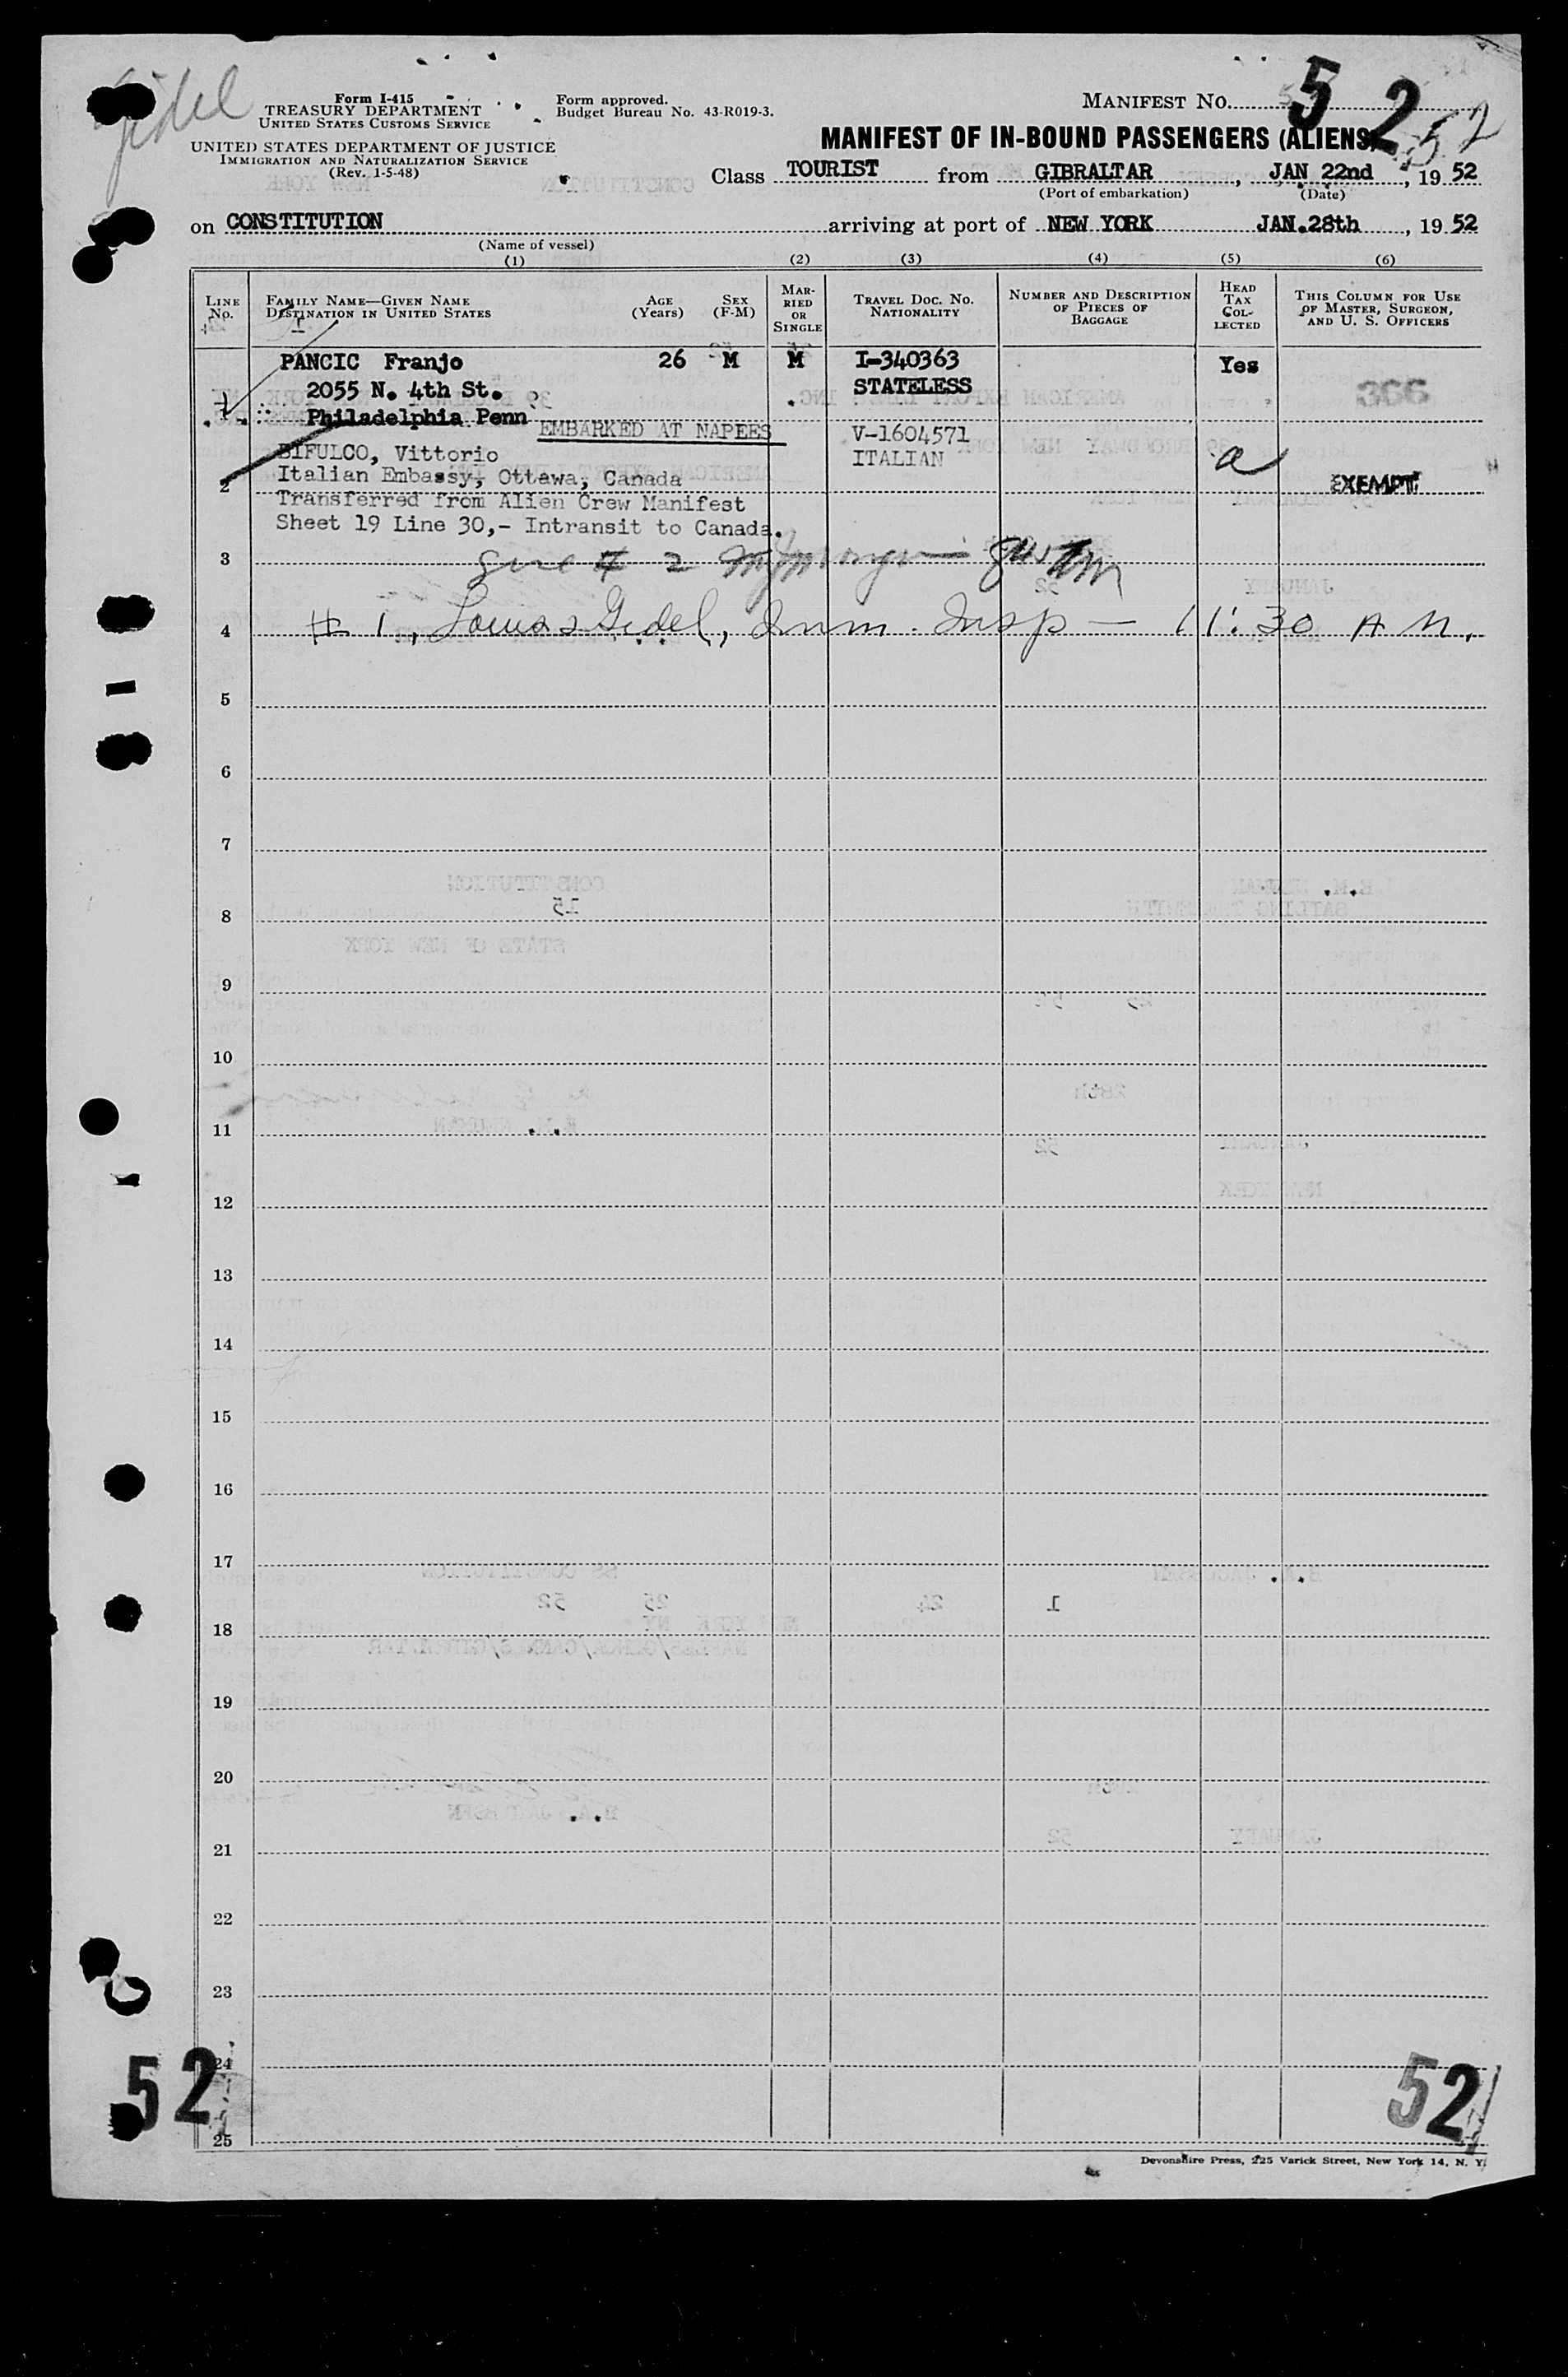 Gidel
Form I-415
TREASURY DEPARTMENT
UNITED STATES CUSTOMS SERVICE
UNITED STATES DEPARTMENT OF JUSTICE
IMMIGRATION AND NATURALIZATION SERVICE
(Rev. 1-5-48)
Form approved.
Budget Bureau No. 43-R019-3.
MANIFEST NO. 52
52
MANIFEST OF IN-BOUND PASSENGERS (ALIENS)
Class TOURIST from GIBRALTAR, JAN 22nd, 19 52
(Port of embarkation) (Date)
on CONSTITUTION arriving at port of NEW YORK JAN.28th, 19 52
(Name of vessel)
(1) (2) (3) (4) (5) (6)
LINE NO. FAMILY NAME—GIVEN NAME DESTINATION IN UNITED STATES AGE (Years) SEX (F-M) MARRIED OR SINGLE TRAVEL DOC. NO. NATIONALITY NUMBER AND DESCRIPTION OF PIECES OF BAGGAGE HEAD TAX COLLECTED THIS COLUMN FOR USE OF MASTER, SURGEON, AND U. S. OFFICERS
PANCIC Franjo 26 M M I-340363 Yes
2055 N. 4th St. STATELESS
1 Philadelphia Penn
EMBARKED AT NAPLES V-1604571
BIFULCO, Vittorio ITALIAN
Italian Embassy, Ottawa, Canada
2 EXEMPT
Transferred from Alien Crew Manifest
Sheet 19 Line 30,- Intransit to Canada.
3
4 # 1, Louis Gidel, Imm. Insp — 11:30 A M.
5
6
7
8
9
10
11
12
13
14
15
16
17
18
19
20
21
22
23
24
25
52
52
Devonshire Press, 225 Varick Street, New York 14, N. Y.